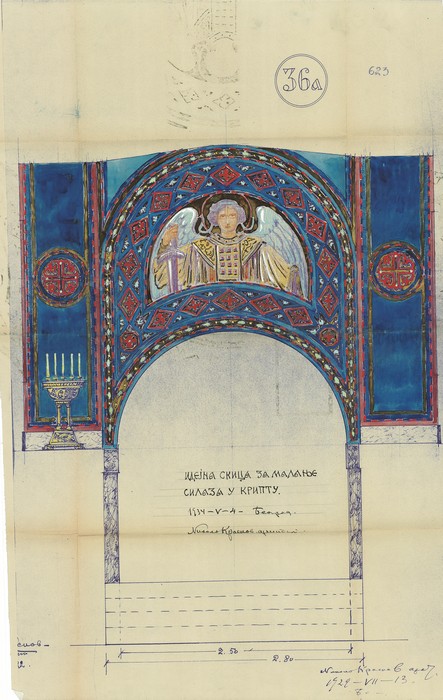 36а
623
ШЕЈНА СКИЦА ЗА МАЛАЊЕ
СИЛАЗА У КРИПТУ.
1934-V-4- Београд.
Никола Краснов
2.50
2.80
Никола Краснов арх.
VII-13.